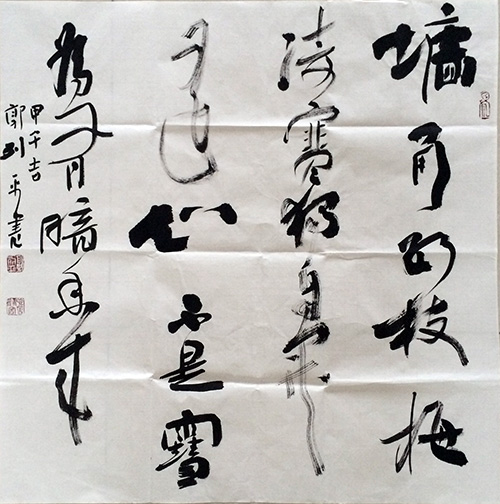 墙角数枝梅
凌寒独自开
遥知不是雪
为有暗香来
甲午吉
郭列平書